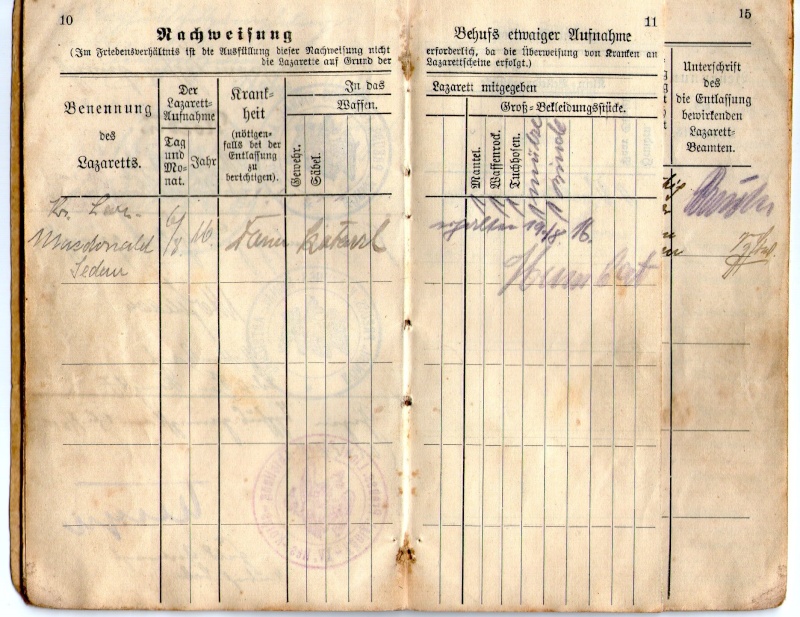 10
Nachweisung
(Im Friedensverhältnis ist die Ausfüllung dieser Nachweisung nicht
die Lazarette auf Grund der
Benennung
des
Lazaretts.
Der
Lazarett-
Aufnahme
Tag
und
Mo-
nat.
Jahr
Krank-
heit
(nötigen-
falls bei der
Entlassung
zu
berichtigen).
In das
Waffen.
Gewehr.
Säbel.
Macdonald
Sedan
6/8
16.
Darm katarrh
11
Behufs etwaiger Aufnahme
erforderlich, da die Überweisung von Kranken an
Lazarettscheine erfolgt.)
Lazarett mitgegeben
Groß-Bekleidungsstücke.
Mantel.
Waffenrock.
Tuchhosen.
1 1 1 1 1
Mütze
Binde
erhalten 19/8 16.
Humbert
15
Unterschrift
des
die Entlassung
bewirkenden
Lazarett-
Beamten.